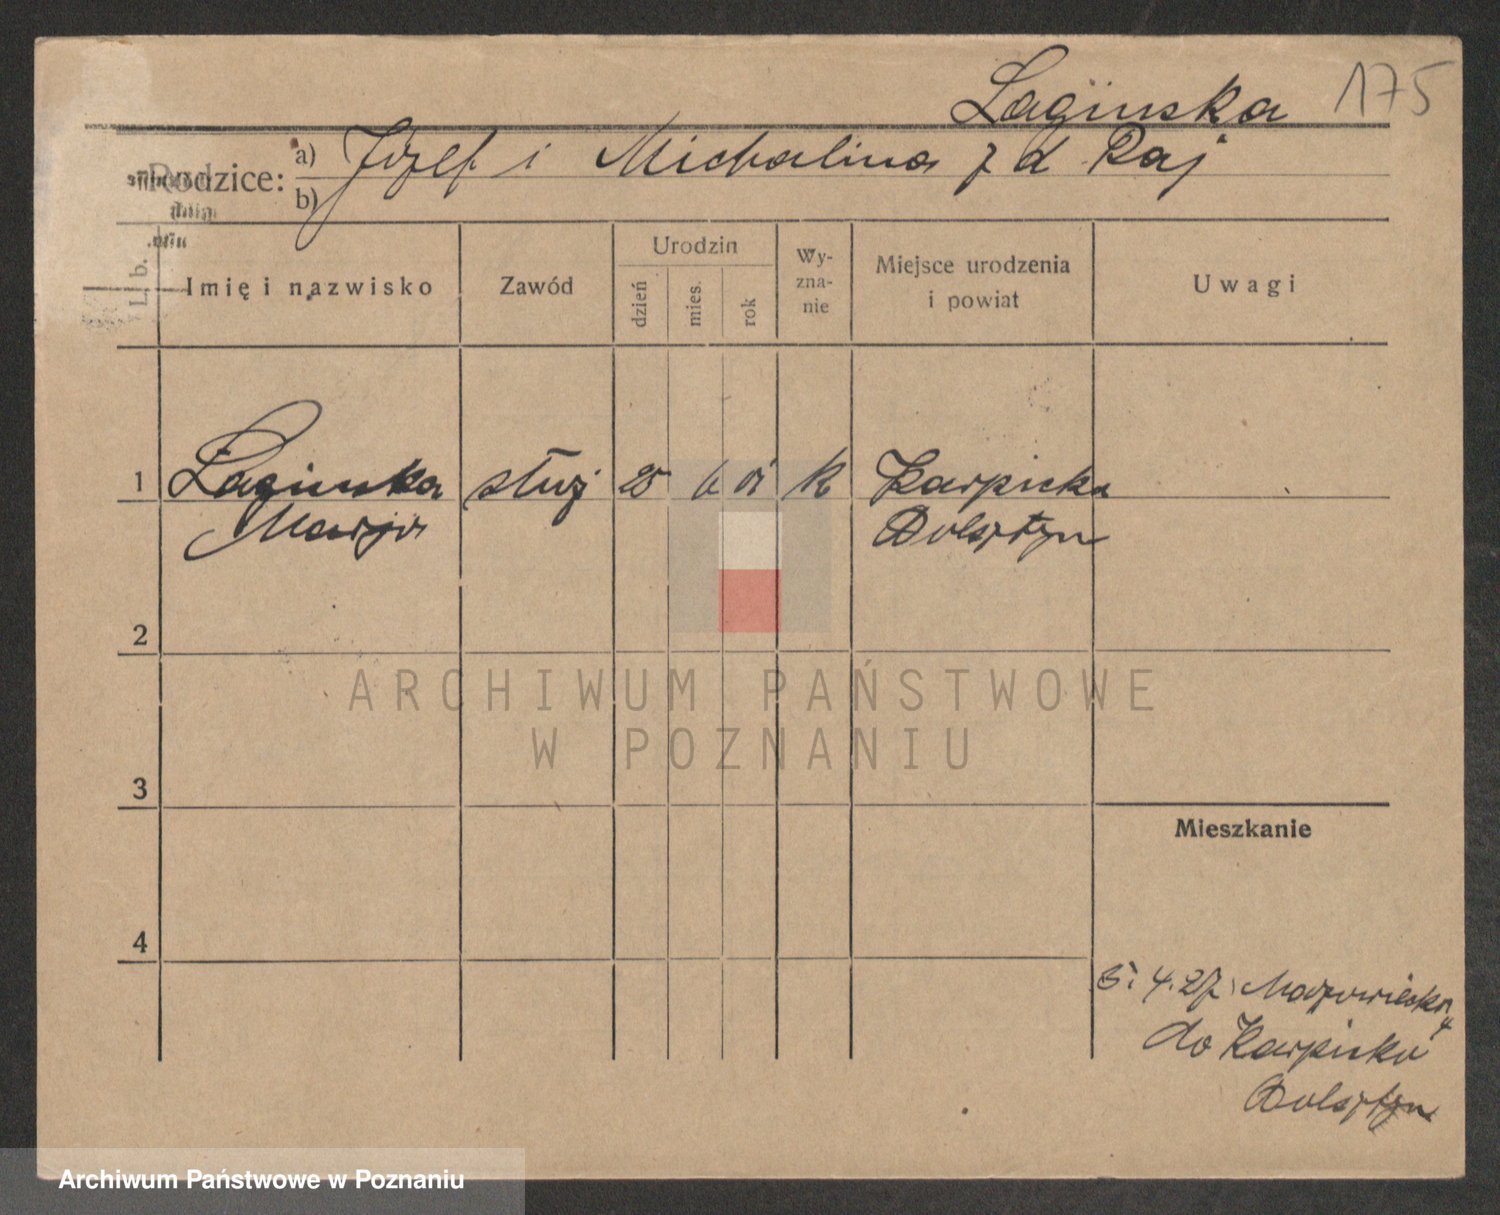 Łagińska 175
Rodzice: a) Józef i Michalina z d Raj
b)
L. b.
Imię i nazwisko
Zawód
Urodzin
dzień
mies.
rok
Wy-
zna-
nie
Miejsce urodzenia
i powiat
Uwagi
1 Łagińska służ 25 6 01 k Karpicko
Marja Wolsztyn
2
ARCHIWUM PAŃSTWOWE
W POZNANIU
3
Mieszkanie
4
4.27 Mazowiecka
4
do Karpicko
Wolsztyn
Archiwum Państwowe w Poznaniu